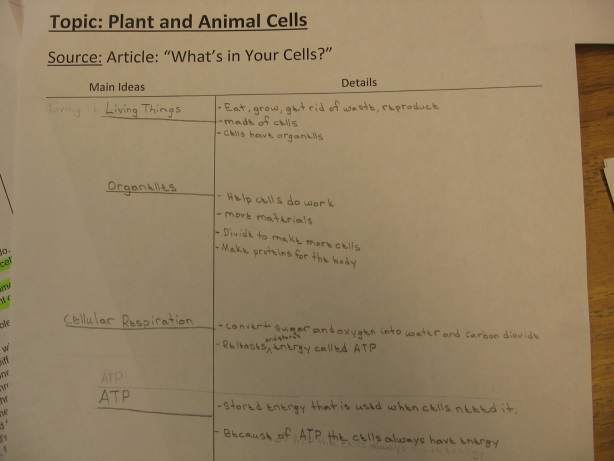 Topic: Plant and Animal Cells
Source: Article: “What’s in Your Cells?”
Main Ideas
Details
Living Things
- Eat, grow, get rid of waste, reproduce
- made of cells
- cells have organells
Organelles
- Help cells do work
- move materials
- Divide to make more cells
- Make proteins for the body
Cellular Respiration
- convert sugar and oxygen into water and carbon dioxide
- Releases and stores energy called ATP
ATP
ATP
- Stored energy that is used when cells need it.
- Because of ATP the cells always have energy